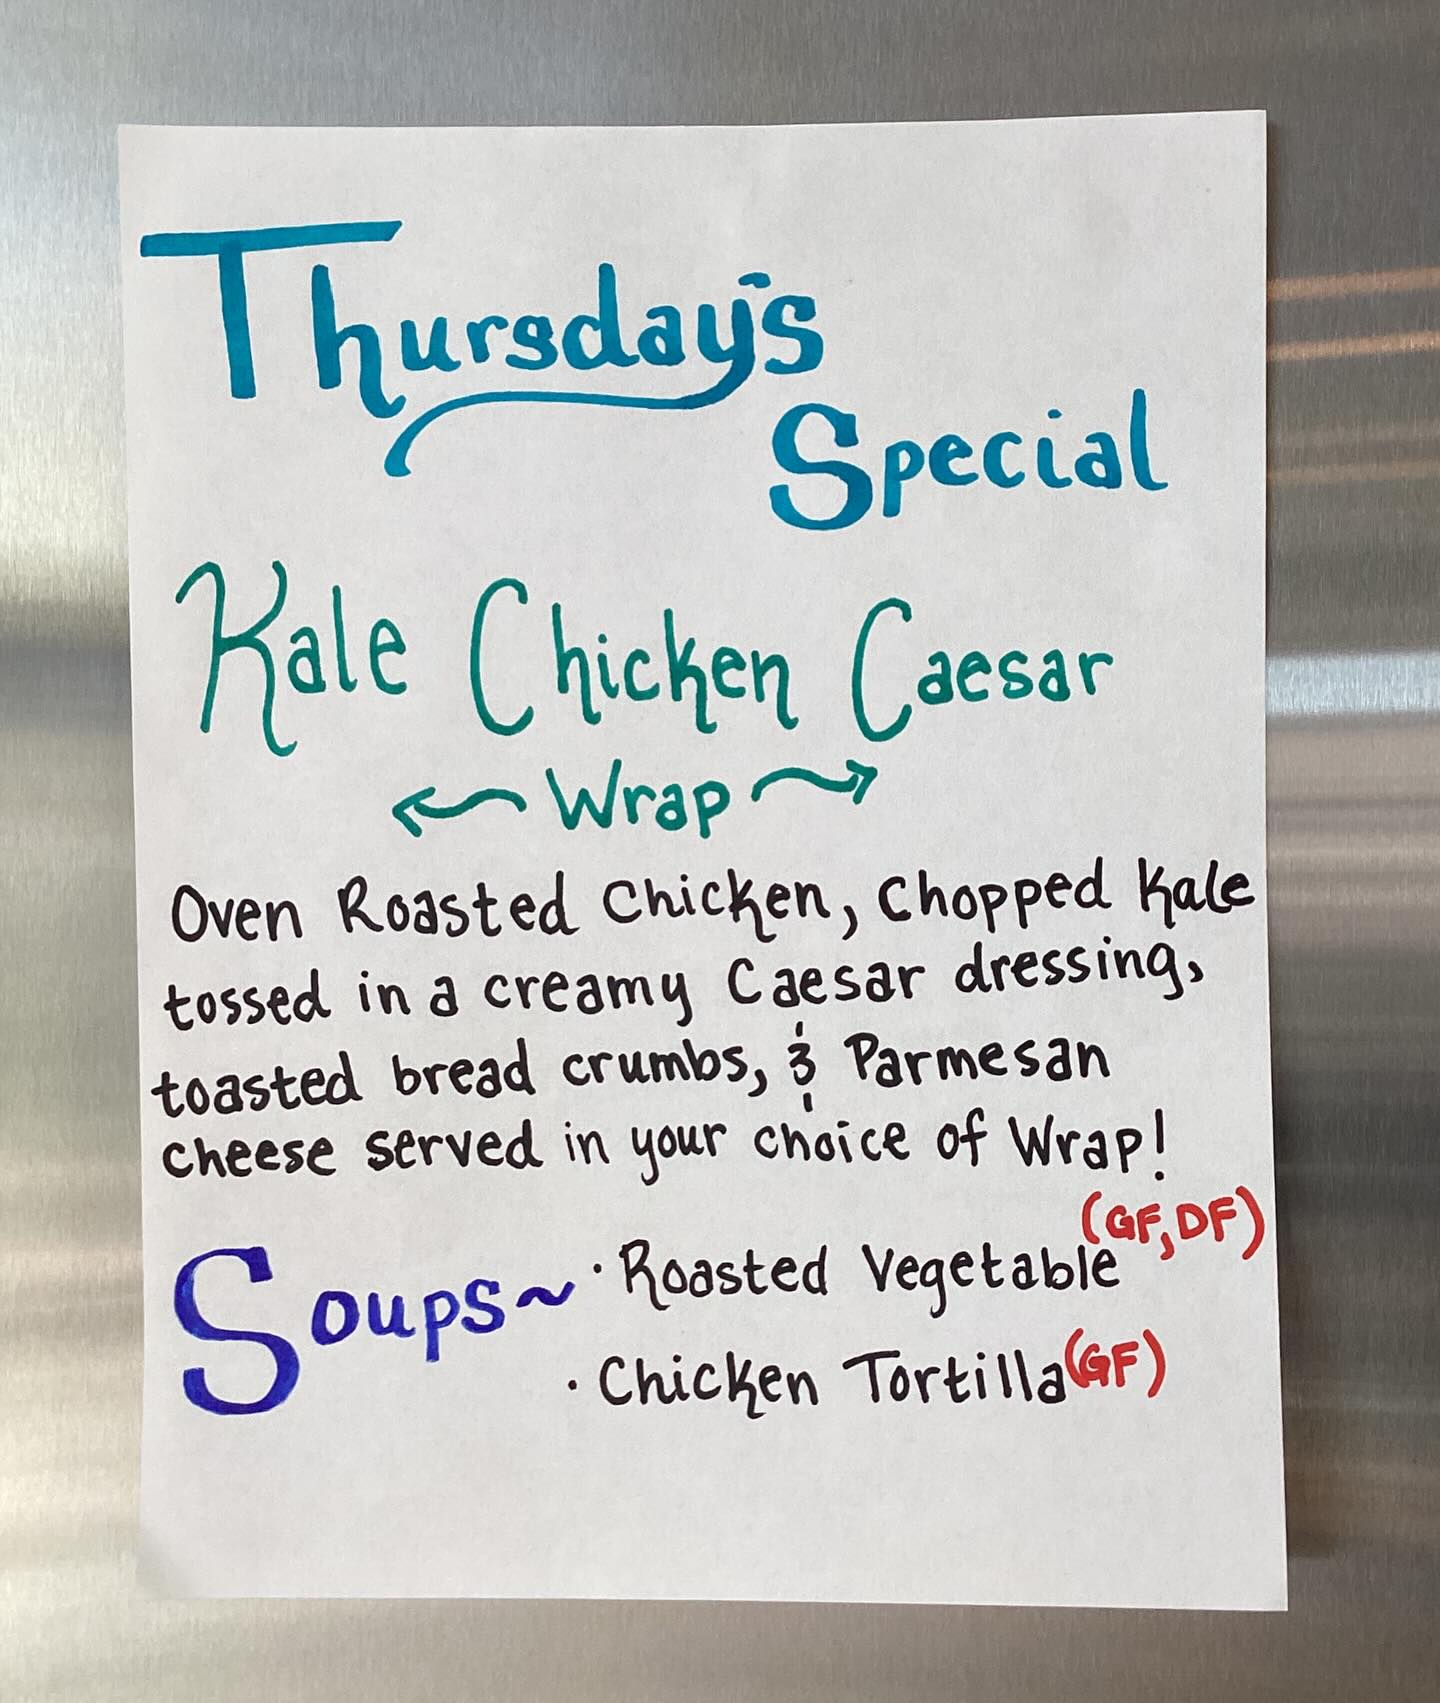 Thursday's
Special
Kale Chicken Caesar
Wrap
Oven Roasted Chicken, Chopped Kale
tossed in a creamy Caesar dressing,
toasted bread crumbs, & Parmesan
cheese served in your choice of Wrap!
Soups~ · Roasted Vegetable (GF, DF)
· Chicken Tortilla (GF)